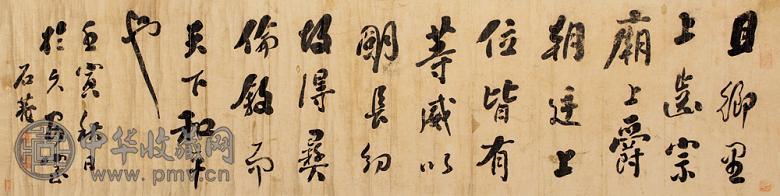 且鄉里
上齒宗
廟上爵
朝廷上
位皆有
等威以
明長幼
故得彝
倫敘而
天下和平
也
壬寅秋日
於
石菴
中华收藏网